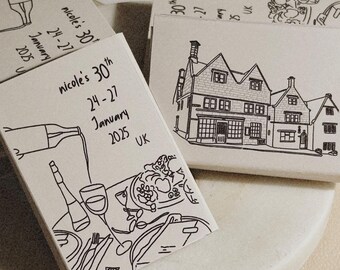 nicole's 30th
24 - 27
January
2025
UK
30th
24 - 27
January
2025